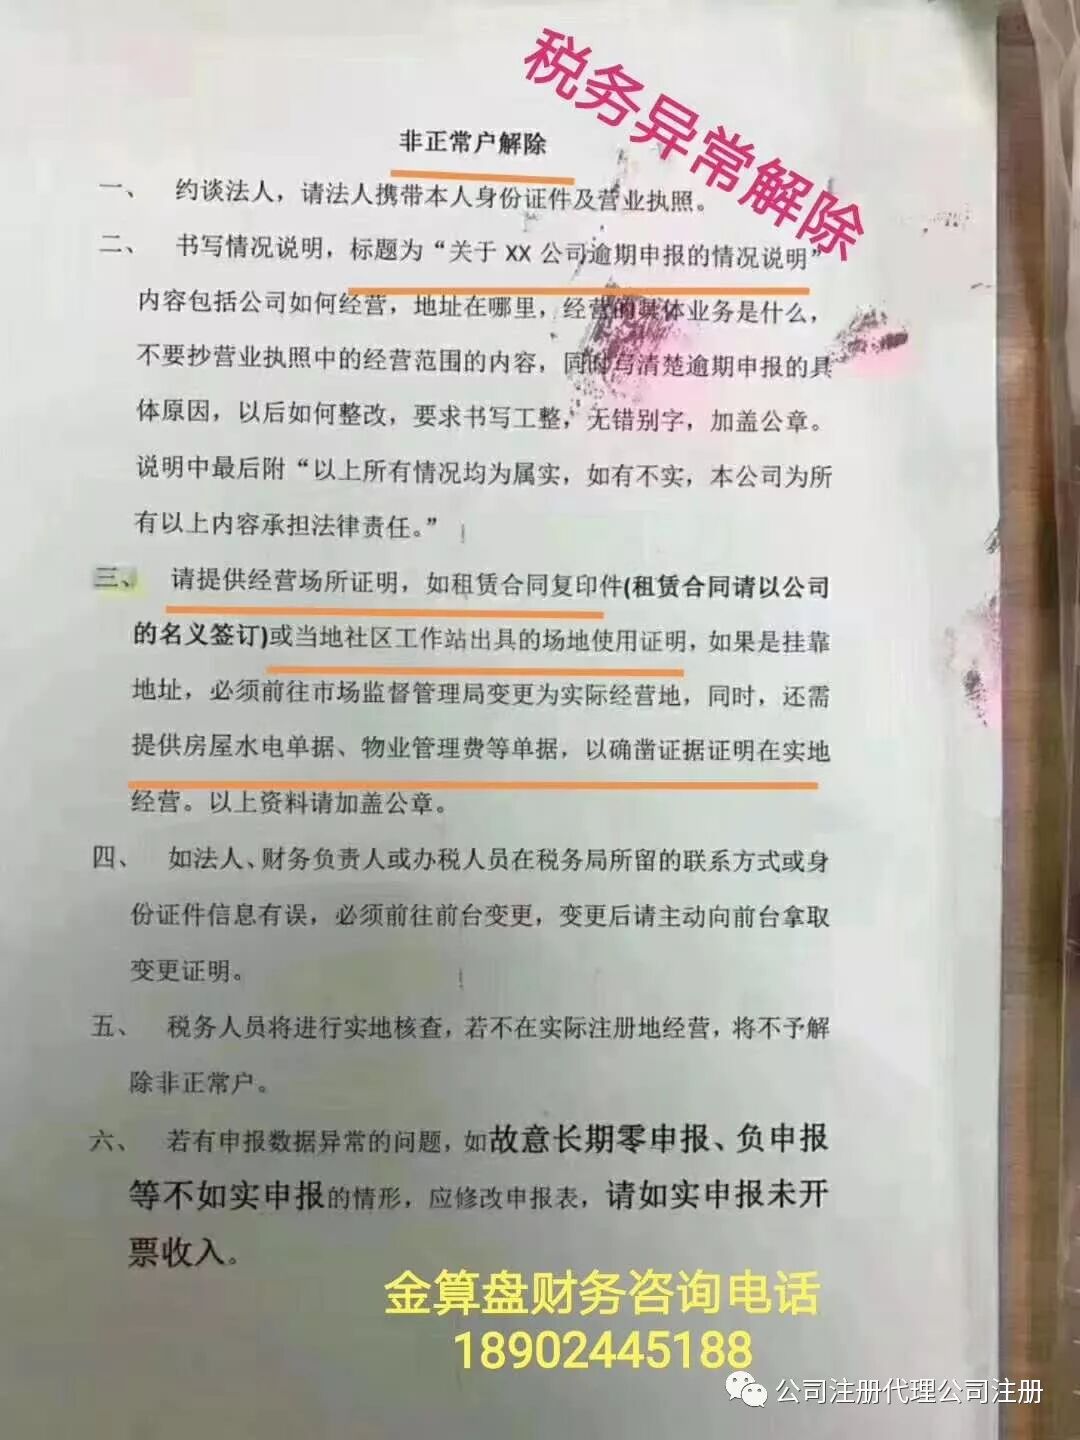 税务异常解除
非正常户解除
一、 约谈法人，请法人携带本人身份证件及营业执照。
二、 书写情况说明，标题为“关于 XX 公司逾期申报的情况说明”
内容包括公司如何经营，地址在哪里，经营的具体业务是什么，
不要抄营业执照中的经营范围的内容，同时写清楚逾期申报的具
体原因，以后如何整改，要求书写工整，无错别字，加盖公章。
说明中最后附“以上所有情况均为属实，如有不实，本公司为所
有以上内容承担法律责任。”
三、 请提供经营场所证明，如租赁合同复印件(租赁合同请以公司
的名义签订)或当地社区工作站出具的场地使用证明，如果是挂靠
地址，必须前往市场监督管理局变更为实际经营地，同时，还需
提供房屋水电单据、物业管理费等单据，以确凿证据证明在实地
经营。以上资料请加盖公章。
四、 如法人、财务负责人或办税人员在税务局所留的联系方式或身
份证件信息有误，必须前往前台变更，变更后请主动向前台拿取
变更证明。
五、 税务人员将进行实地核查，若不在实际注册地经营，将不予解
除非正常户。
六、 若有申报数据异常的问题，如故意长期零申报、负申报
等不如实申报的情形，应修改申报表，请如实申报未开
票收入。
金算盘财务咨询电话
18902445188
公司注册代理公司注册